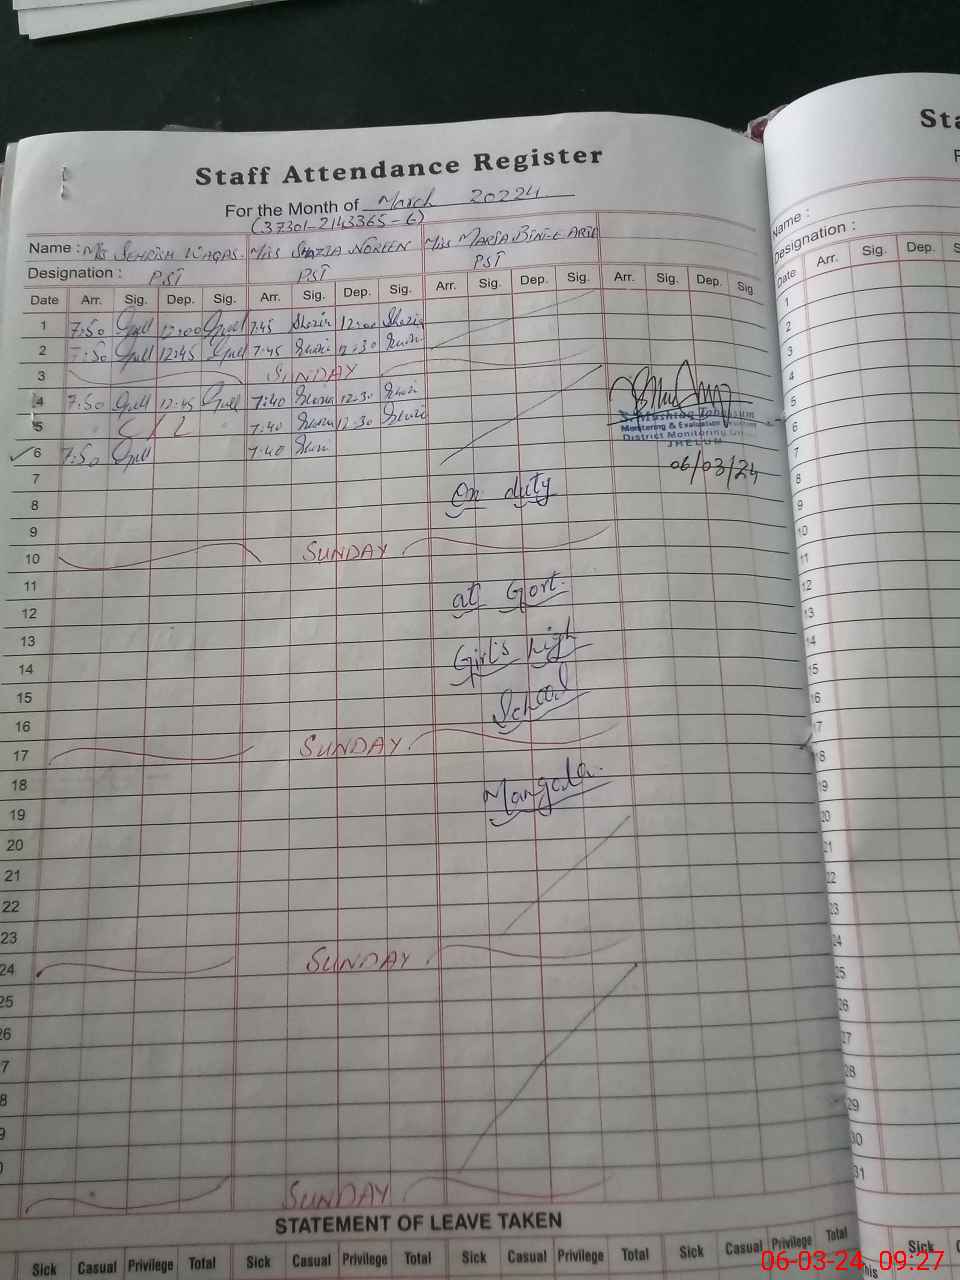 Staff Attendance Register
For the Month of March 20224
(37301-2143365-6)
Name : Miss SEHRISH WAQAS. Miss SHAZIA NOREEN Miss MARIA BINT-E ARIF
Designation : PST PST PST
Date Arr. Sig. Dep. Sig. Arr. Sig. Dep. Sig. Arr. Sig. Dep. Sig. Arr. Sig. Dep. Sig.
1 7:50 12:00 7:45 Shazia 12:00 Shazia
2 7:50 12:45 7:45 12:30
3 SUNDAY
4 7:50 12:45 7:40 12:30
5 7:40 12:30
6 7:50 7:40
S. Mushtaq Tabassum
Monitoring & Evaluation
District Monitoring
JHELUM
06/03/24
7
8 On duty
9
10 SUNDAY
11
12 at Govt.
13
14 Girl's high
15
16 School
17 SUNDAY
18
19 Mangla.
20
21
22
23
24 SUNDAY
25
26
7
8
9
0
SUNDAY
STATEMENT OF LEAVE TAKEN
Sick Casual Privilege Total Sick Casual Privilege Total Sick Casual Privilege Total Sick Casual Privilege Total
Sta
F
Name :
Designation :
Date Arr. Sig. Dep. Sig
1
2
3
4
5
6
7
8
9
10
11
12
13
14
15
16
17
18
19
20
21
22
23
24
25
26
27
28
29
30
31
his Sick C
06-03-24 09:27